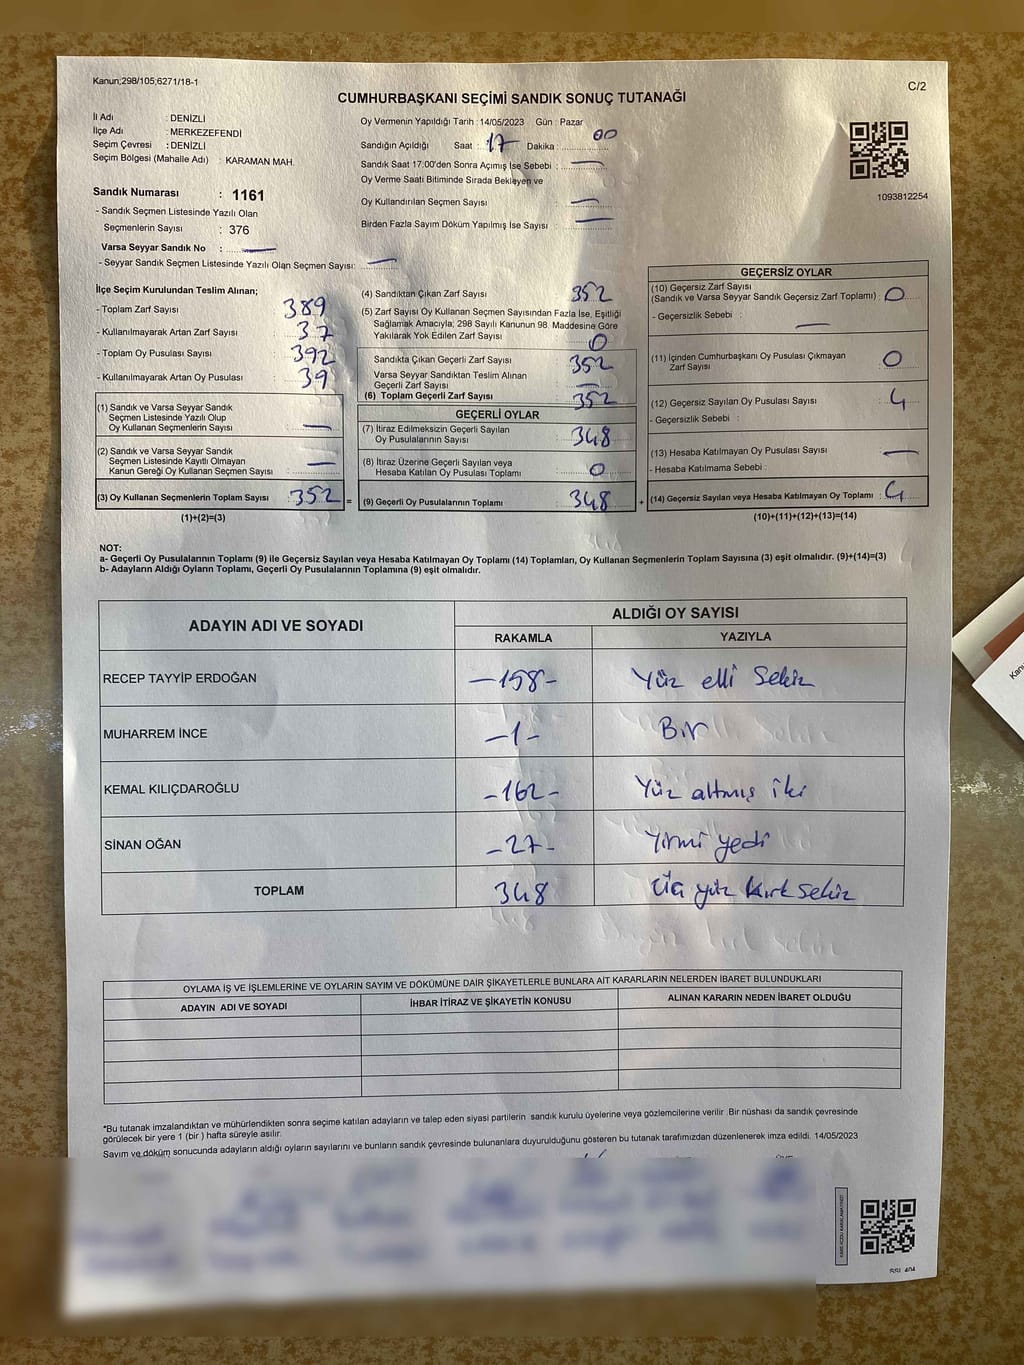 Kanun;298/105;6271/18-1
C/2
CUMHURBAŞKANI SEÇİMİ SANDIK SONUÇ TUTANAĞI
İl Adı : DENİZLİ
İlçe Adı : MERKEZEFENDİ
Seçim Çevresi : DENİZLİ
Seçim Bölgesi (Mahalle Adı) : KARAMAN MAH.
Sandık Numarası : 1161
- Sandık Seçmen Listesinde Yazılı Olan
Seçmenlerin Sayısı : 376
Varsa Seyyar Sandık No : —
- Seyyar Sandık Seçmen Listesinde Yazılı Olan Seçmen Sayısı: —
Oy Vermenin Yapıldığı Tarih : 14/05/2023 Gün : Pazar
Sandığın Açıldığı Saat : 17 Dakika : 00
Sandık Saat 17:00'den Sonra Açımış İse Sebebi : —
Oy Verme Saati Bitiminde Sırada Bekleyen ve
Oy Kullandırılan Seçmen Sayısı : —
Birden Fazla Sayım Döküm Yapılmış İse Sayısı : —
1093812254
İlçe Seçim Kurulundan Teslim Alınan;
- Toplam Zarf Sayısı : 389
- Kullanılmayarak Artan Zarf Sayısı : 37
- Toplam Oy Pusulası Sayısı : 392
- Kullanılmayarak Artan Oy Pusulası : 39
(1) Sandık ve Varsa Seyyar Sandık
Seçmen Listesinde Yazılı Olup
Oy Kullanan Seçmenlerin Sayısı : —
(2) Sandık ve Varsa Seyyar Sandık
Seçmen Listesinde Kayıtlı Olmayan
Kanun Gereği Oy Kullanan Seçmen Sayısı : —
(3) Oy Kullanan Seçmenlerin Toplam Sayısı : 352 =
(1)+(2)=(3)
(4) Sandıktan Çıkan Zarf Sayısı : 352
(5) Zarf Sayısı Oy Kullanan Seçmen Sayısından Fazla İse, Eşitliği
Sağlamak Amacıyla; 298 Sayılı Kanunun 98. Maddesine Göre
Yakılarak Yok Edilen Zarf Sayısı : 0
Sandıkta Çıkan Geçerli Zarf Sayısı : 352
Varsa Seyyar Sandıktan Teslim Alınan
Geçerli Zarf Sayısı : —
(6) Toplam Geçerli Zarf Sayısı : 352
GEÇERLİ OYLAR
(7) İtiraz Edilmeksizin Geçerli Sayılan
Oy Pusulalarının Sayısı : 348
(8) İtiraz Üzerine Geçerli Sayılan veya
Hesaba Katılan Oy Pusulası Toplamı : 0
(9) Geçerli Oy Pusulalarının Toplamı : 348 +
GEÇERSİZ OYLAR
(10) Geçersiz Zarf Sayısı
(Sandık ve Varsa Seyyar Sandık Geçersiz Zarf Toplamı) : 0
- Geçersizlik Sebebi : —
(11) İçinden Cumhurbaşkanı Oy Pusulası Çıkmayan
Zarf Sayısı : 0
(12) Geçersiz Sayılan Oy Pusulası Sayısı : 4
- Geçersizlik Sebebi :
(13) Hesaba Katılmayan Oy Pusulası Sayısı : —
- Hesaba Katılmama Sebebi :
(14) Geçersiz Sayılan veya Hesaba Katılmayan Oy Toplamı : 4
(10)+(11)+(12)+(13)=(14)
NOT:
a- Geçerli Oy Pusulalarının Toplamı (9) ile Geçersiz Sayılan veya Hesaba Katılmayan Oy Toplamı (14) Toplamları, Oy Kullanan Seçmenlerin Toplam Sayısına (3) eşit olmalıdır. (9)+(14)=(3)
b- Adayların Aldığı Oyların Toplamı, Geçerli Oy Pusulalarının Toplamına (9) eşit olmalıdır.
ADAYIN ADI VE SOYADI ALDIĞI OY SAYISI
RAKAMLA YAZIYLA
RECEP TAYYİP ERDOĞAN -158- Yüz elli Sekiz
MUHARREM İNCE -1- Bir
KEMAL KILIÇDAROĞLU -162- Yüz altmış iki
SİNAN OĞAN -27- Yirmi yedi
TOPLAM 348 üç yüz kırk sekiz
OYLAMA İŞ VE İŞLEMLERİNE VE OYLARIN SAYIM VE DÖKÜMÜNE DAİR ŞİKAYETLERLE BUNLARA AİT KARARLARIN NELERDEN İBARET BULUNDUKLARI
ADAYIN ADI VE SOYADI İHBAR İTİRAZ VE ŞİKAYETİN KONUSU ALINAN KARARIN NEDEN İBARET OLDUĞU
*Bu tutanak imzalandıktan ve mühürlendikten sonra seçime katılan adayların ve talep eden siyasi partilerin sandık kurulu üyelerine veya gözlemcilerine verilir .Bir nüshası da sandık çevresinde
görülecek bir yere 1 (bir ) hafta süreyle asılır.
Sayım ve döküm sonucunda adayların aldığı oyların sayılarını ve bunların sandık çevresinde bulunanlara duyurulduğunu gösteren bu tutanak tarafımızdan düzenlenerek imza edildi. 14/05/2023